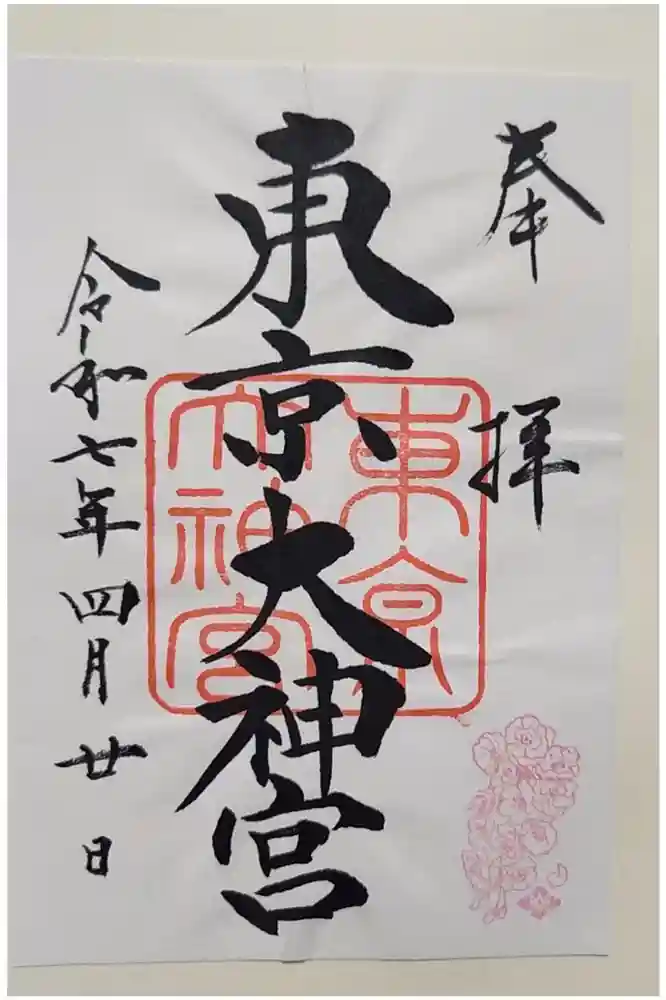 奉拝
東京大神宮
東京
大神宮
令和七年四月廿日